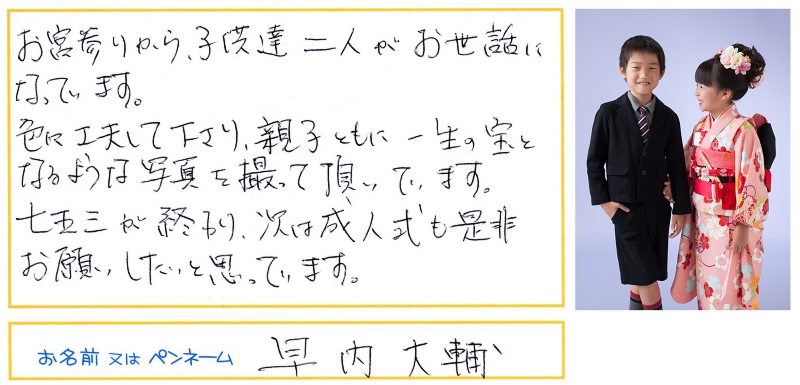 お宮参りから、子供達 二人が お世話に
なっています。
色々工夫して下さり、親子ともに 一生の宝と
なるような写真を撮って頂いています。
七五三が終わり、次は成人式も是非
お願いしたいと思っています。
お名前 又は ペンネーム 早内 大輔